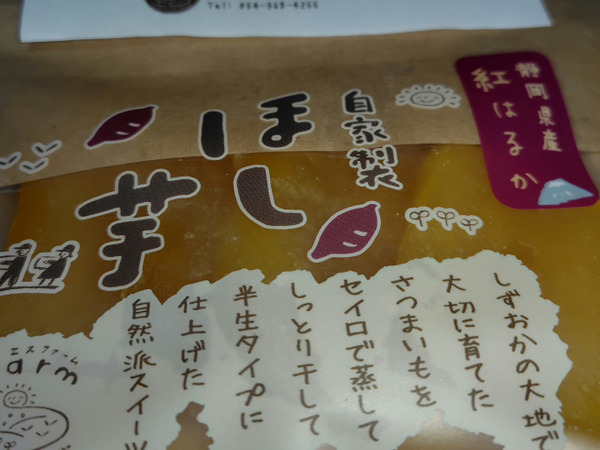 Tel: 054-369-4255
静岡県産
紅はるか
自家製
ほし
芋
しずおかの大地で
大切に育てた
さつまいもを
セイロで蒸して
しっとり干して
半生タイプに
仕上げた
自然派スイーツ
エスファーム
arm